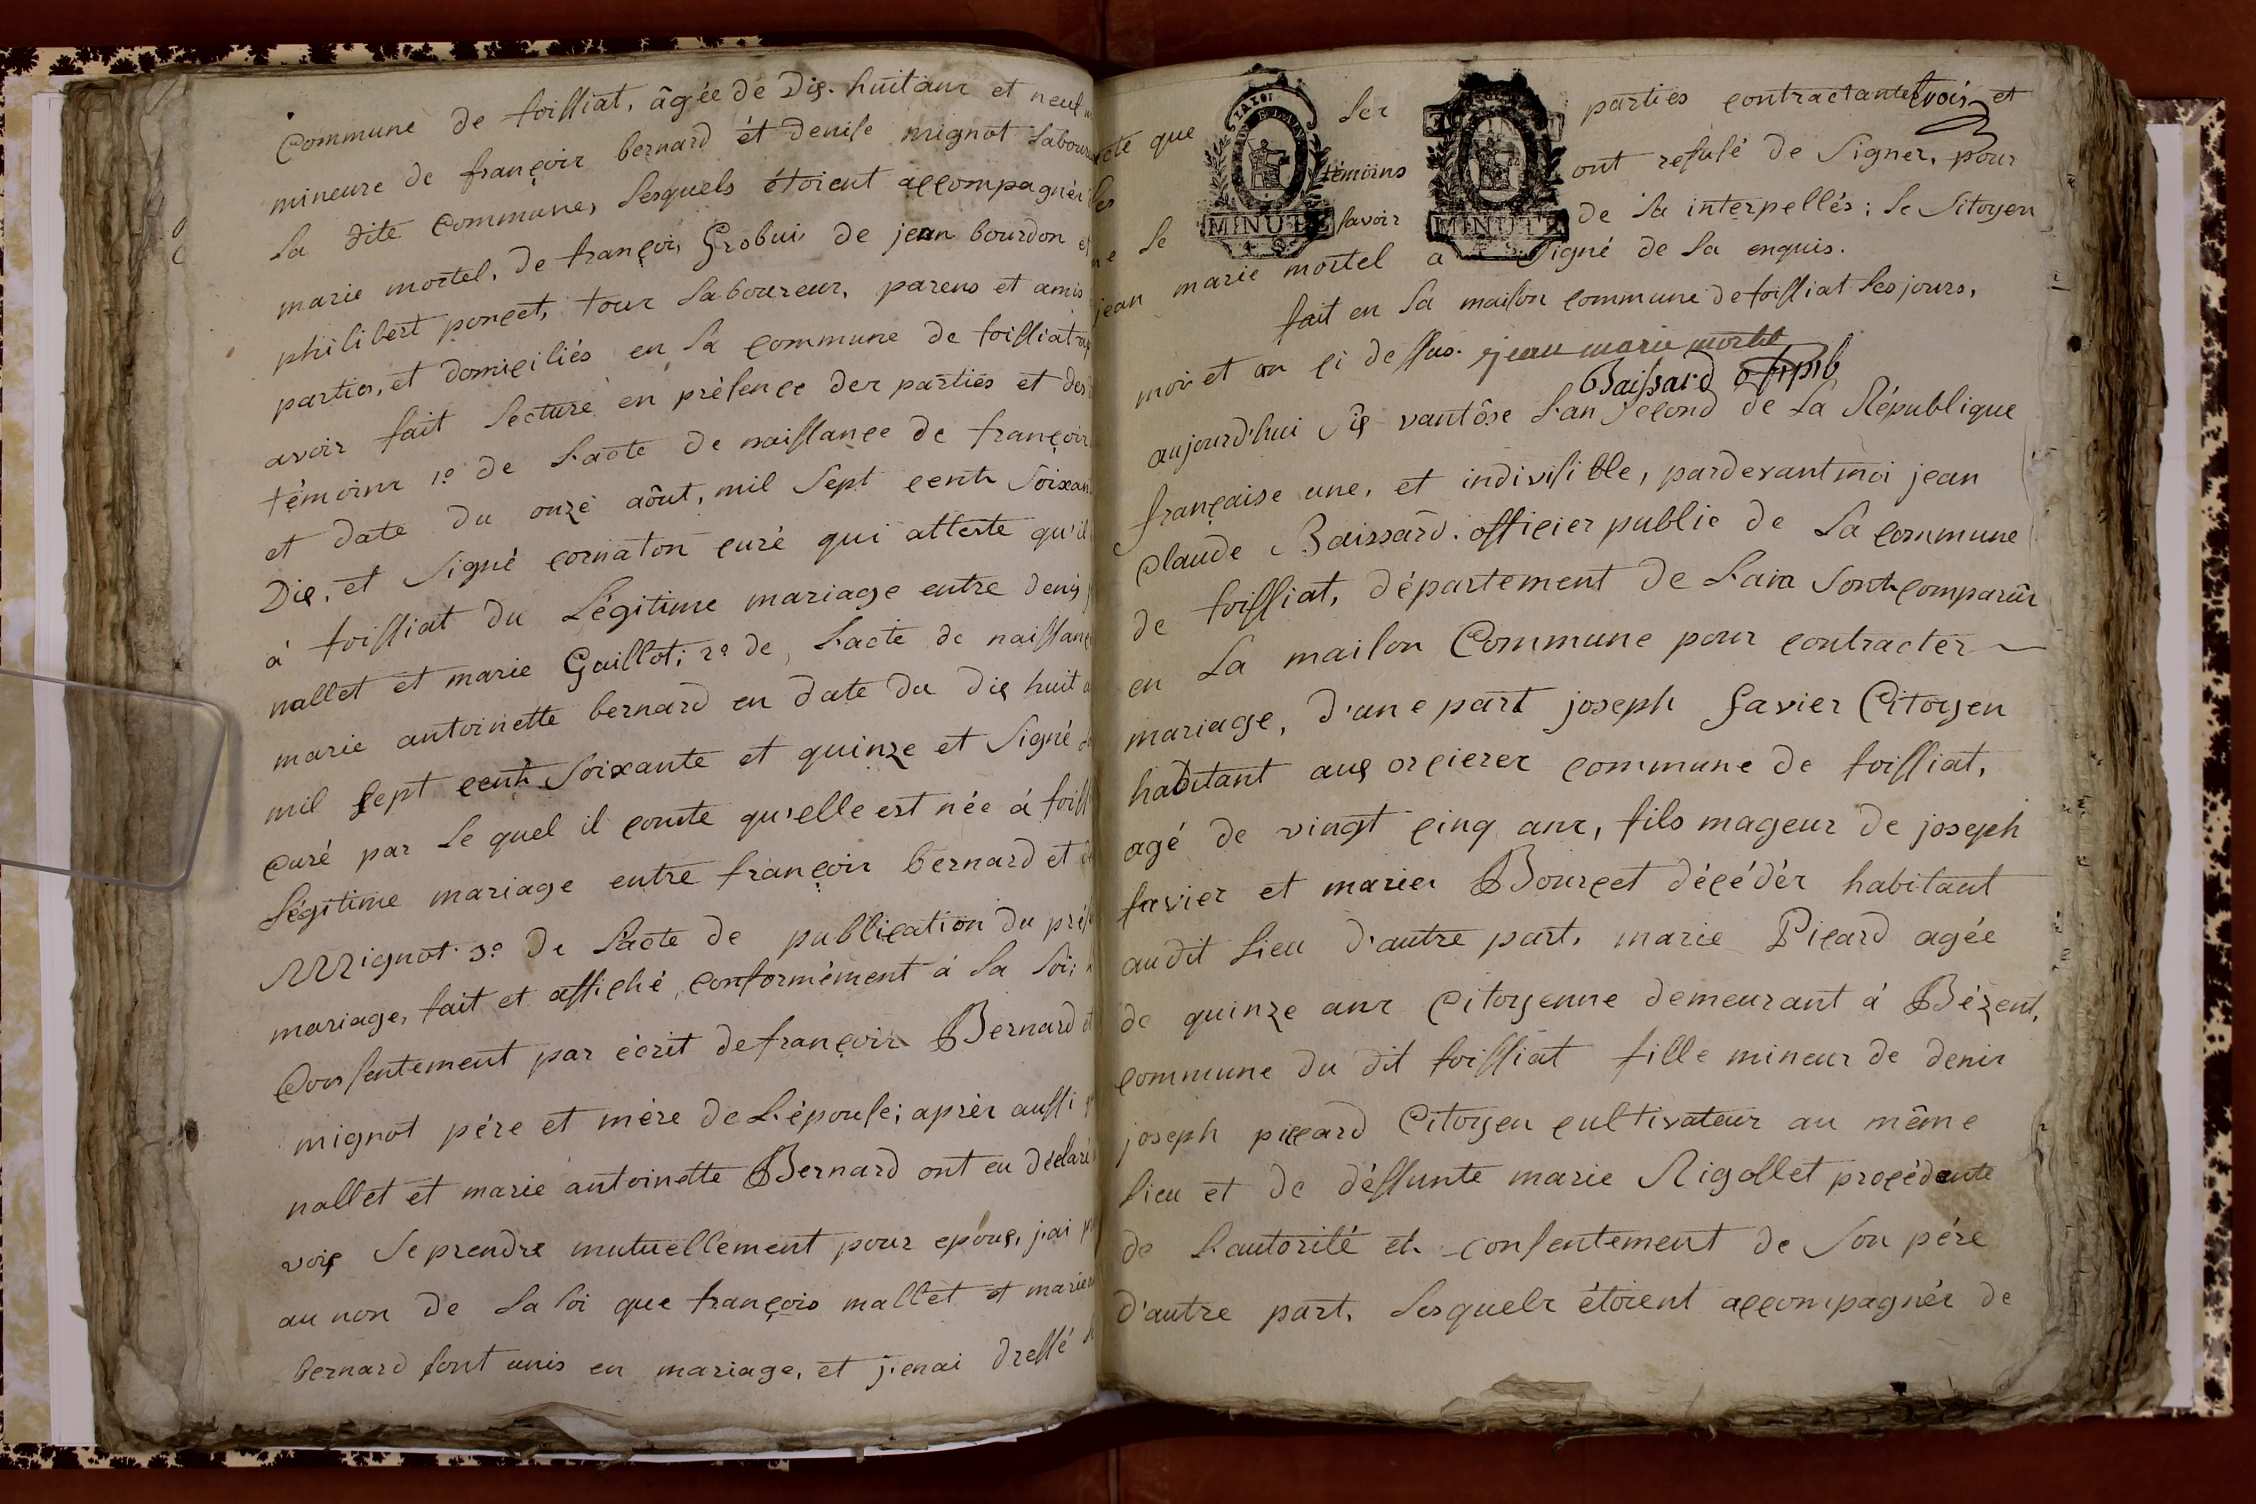 Commune de foissiat, âgée de Dix-huit ans et neuf
mineure de françois bernard ét denise mignot laboureu
la dite Commune, lesquels étoient accompagnés
marie mortel, de françois Grobuis de jean bourdon et
philibert ponçet, tous laboureurs, parens et amis
parties, et domiciliés en la commune de foissiat
avoir fait lecture en présence des parties et des
témoins 1º de l'acte de naissance de françois
et date du onze aôut, mil sept cents soixan
Dix, et signé cornaton curé qui atteste qu'il
à foissiat du Légitime mariage entre denis
nallet et marie Gaillot; 2º de l'acte de naissance
marie antoinette bernard en date du dix huit
mil sept cents soixante et quinze et signé
Curé par le quel il conste qu'elle est née à foiss
légitime mariage entre françois bernard et
Mignot 3º De l'acte de publication du prés
mariage, fait et affiché, conformément à la loi;
Consentement par écrit de françois Bernard et
mignot père et mère de l'épouse; après aussi
nallet et marie antoinette Bernard ont eu déclaré
voix se prendre mutuellement pour epoux, j'ai
au non de la loi que françois mallet et marie
bernard sont unis en mariage, et j'en ai dressé
acte que les parties contractantes trois et
les témoins ont refusé de signer, pour
ne le savoir de la interpellés; le sitoyen
jean marie mortel a signé de la enquis.
fait en la maison commune de foissiat les jours,
mois et an ci dessus. jean marie mortel
Baissard
aujourd'hui six vantôse l'an second de la République
française une, et indivisible, pardevant moi jean
Claude Baissard. officier public de la commune
de foissiat, département de l'ain sont comparûs
en la maison Commune pour contracter
mariage, d'une part joseph favier Citoyen
habitant aux orcieres commune de foissiat,
agé de vingt cinq ans, fils mageur de joseph
favier et marie Bourcet décédés habitant
audit lieu d'autre part, marie Picard agée
de quinze ans Citoyenne demeurant à Bézent,
commune du dit foissiat fille mineur de denis
joseph piccard Citoyen cultivateur au même
lieu et de deffunte marie Rigollet procédante
de l'autorité et consentement de son père
d'autre part, lesquels étoient accompagnés de
LA LOI
MINUTE
4 S.
MINUTE